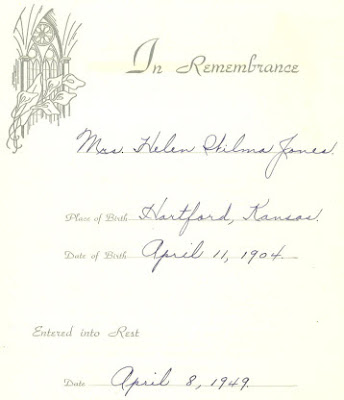 In Remembrance
Mrs. Helen Wilma Jones.
Place of Birth Hartford, Kansas.
Date of Birth April 11, 1904.
Entered into Rest
Date April 8, 1949.